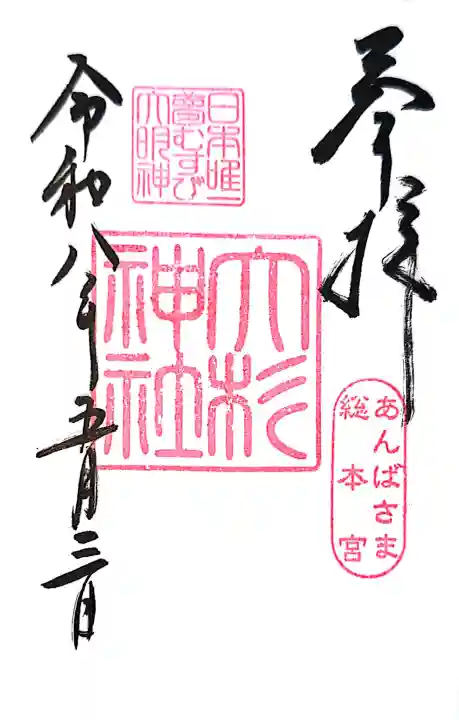 奉拝
あんばさま
総本宮
日本唯一
夢むすび
大明神
大杉
神社
令和八年五月三日